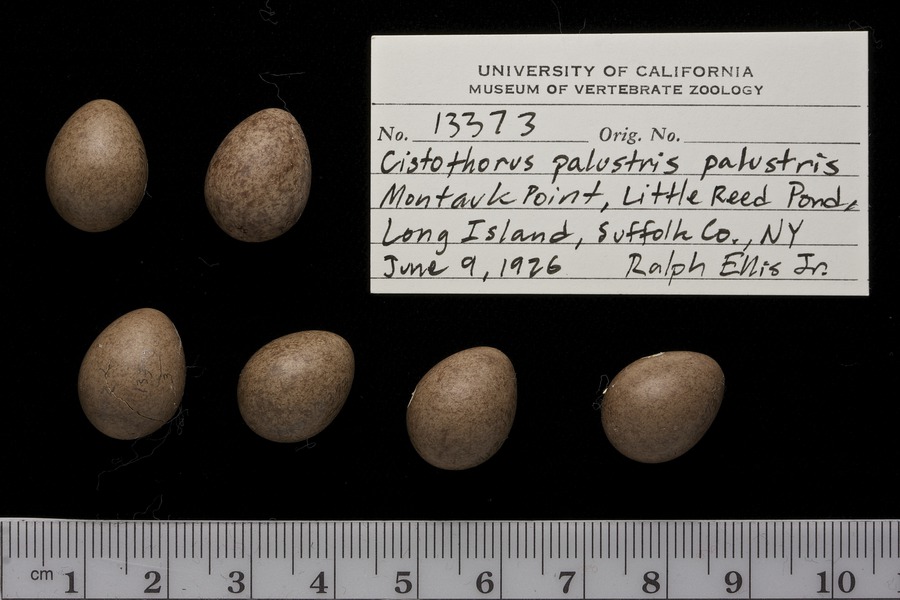 UNIVERSITY OF CALIFORNIA
MUSEUM OF VERTEBRATE ZOOLOGY
No. 13373 Orig. No.
Cistothorus palustris palustris
Montauk Point, Little Reed Pond,
Long Island, Suffolk Co., NY
June 9, 1926 Ralph Ellis Jr.
cm 1 2 3 4 5 6 7 8 9 10